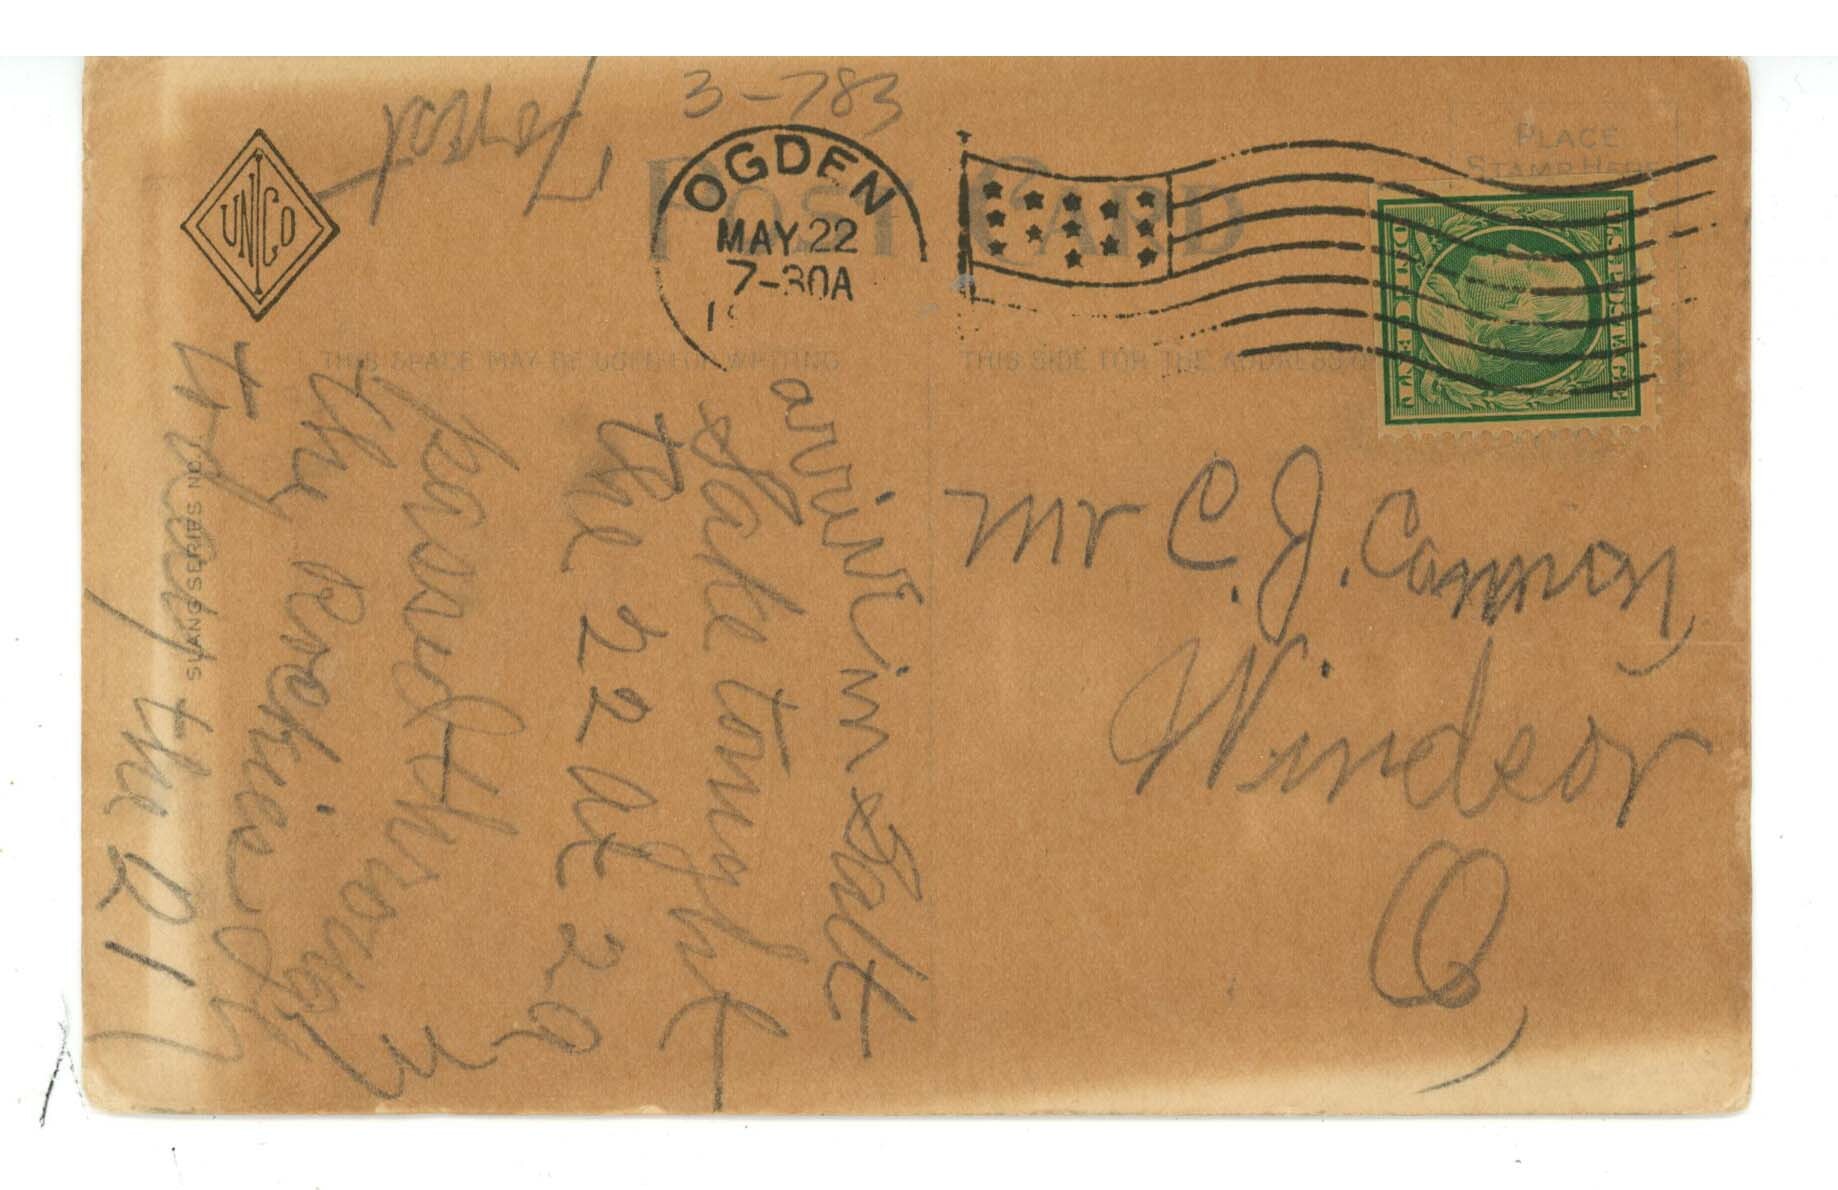 3-783
UNICO
OGDEN
MAY 22
7-30A
POST CARD
PLACE
STAMP HERE
U.S. POSTAGE
ONE CENT
THIS SPACE MAY BE USED FOR WRITING
THIS SIDE FOR THE ADDRESS
Mr C. J. Cannon
Windsor
O
arrive in Salt
Lake tonight
the 22 at 2 am
passed through
the Rockies
to day the 21
Forest
SLANG SERIES NO.